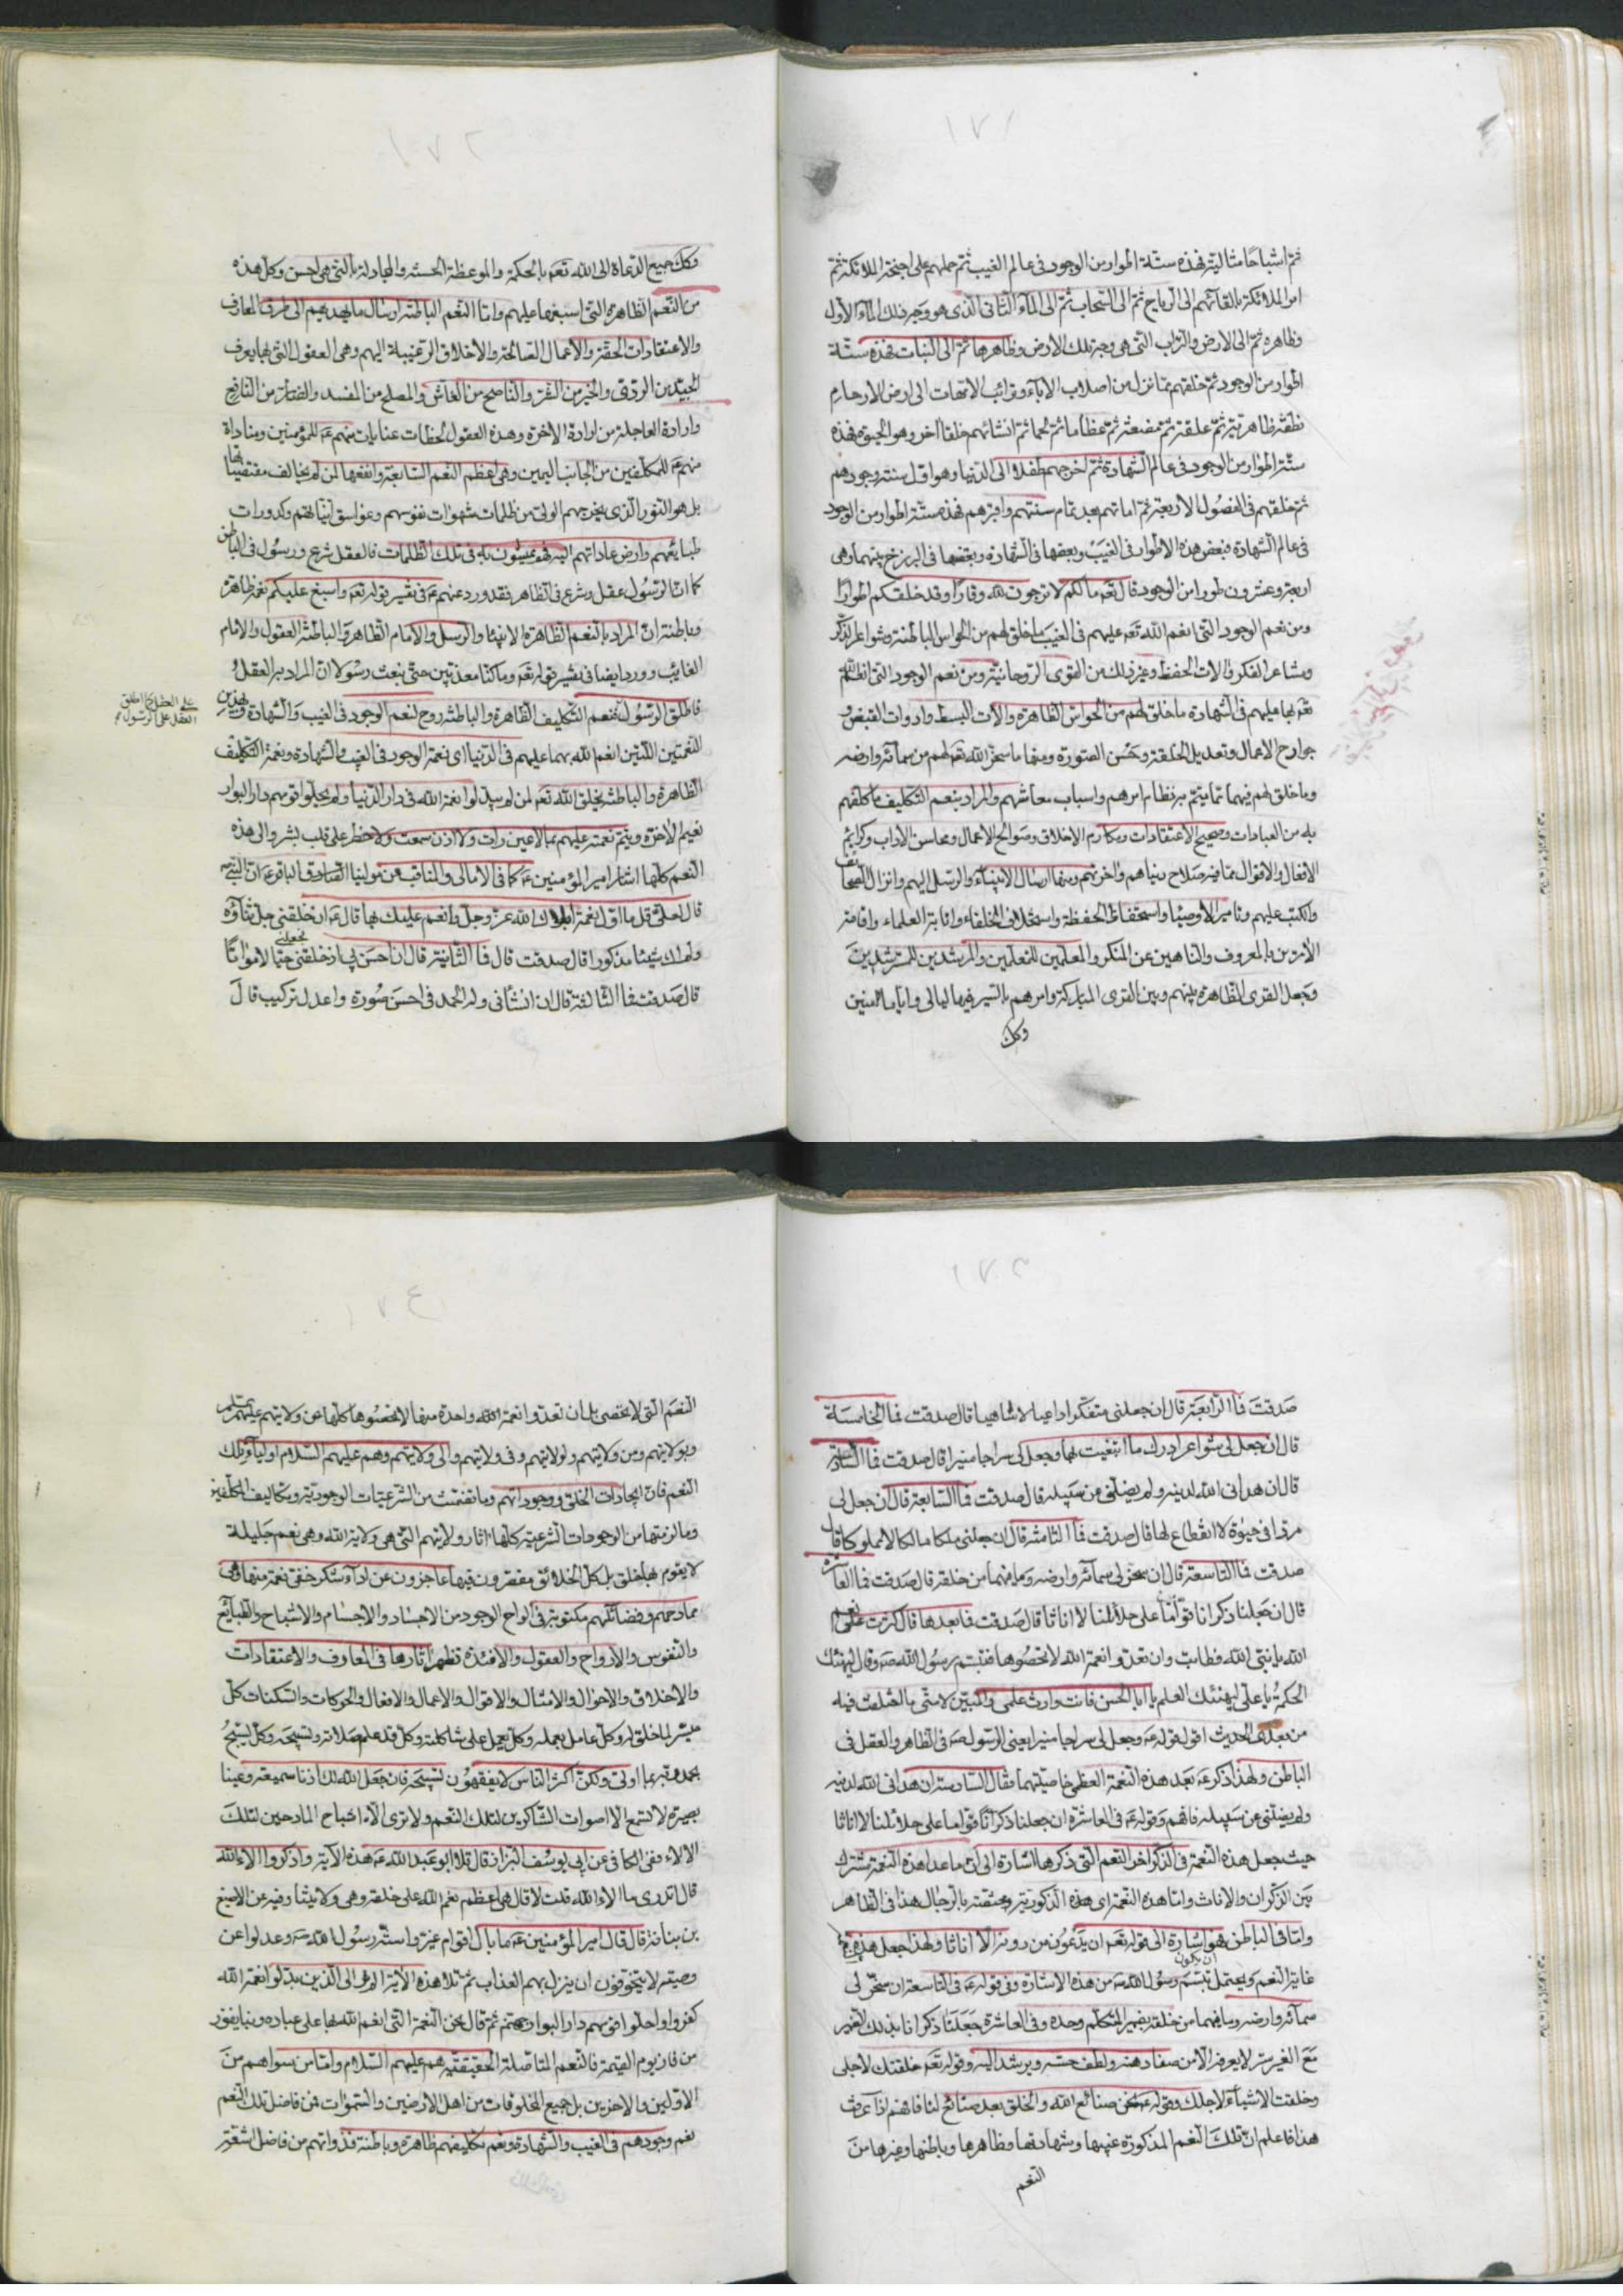 ١٧١
ثم اشباحا مثالية فهذه ستة اطوار من الوجود فى عالم الغيب ثم حملهم على اجنحة الملائكة ثم
امر الملائكة بالقائهم الى الرياح ثم الى السحاب ثم الى الماء الثانى الذى هو وجه ذلك الماء الاول
وظاهره ثم الى الارض والتراب التى هى وجه تلك الارض وظاهرها ثم الى النبات فهذه ستة
اطوار من الوجود ثم خلقهم مما نزل من اصلاب الاباء وترائب الامهات الى ارض الارحام
نطفة ظاهرية ثم علقة ثم مضغة ثم عظاما ثم لحما ثم انشائهم خلقا آخر وهو الحيوة فهذه
ستة اطوار من الوجود فى عالم الشهادة ثم اخرجهم طفلا الى الدنيا وهو اول سنة وجودهم
ثم خلقهم فى الفصول الاربعة ثم اماتهم بعد تمام سنتهم واقبرهم فهذه ستة اطوار من الوجود
فى عالم الشهادة فبعض هذه الاطوار فى الغيب وبعضها فى الشهادة وبعضها فى البرزخ بينهما وهى
اربعة وعشرون طورا من الوجود قال تعم مالكم لا ترجون لله وقارا وقد خلقكم اطوارا
ومن نعم الوجود التى انعم الله تعم عليهم فى الغيب ما خلق لهم من الحواس الباطنة ومشاعر الذكر
ومشاعر الفكر والات الحفظ وغير ذلك من القوى الروحانية ومن نعم الوجود التى انعم الله
تعم بها عليهم فى الشهادة ما خلق لهم من الحواس الظاهرة والات البسط وادوات القبض و
جوارح الاعمال وتعديل الخلقة وحسن الصورة ومنها ما سخر الله تعم لهم من سمائه وارضه
وما خلق لهم فيهما مما يتم به نظام امرهم واسباب معاشهم والمراد بنعم التكليف ما كلفهم
به من العبادات وصحيح الاعتقادات ومكارم الاخلاق وصوالح الاعمال ومحاسن الاداب وكرائم
الافعال والاقوال مما فيه صلاح دنياهم واخرتهم ومنها ارسال الانبياء والرسل اليهم وانزال الصحائف
والكتب عليهم وتامير الاوصيا واستحفاظ الحفظة واستخلاف الخلفاء وانابة العلماء واقامة
الامرين بالمعروف والناهين عن المنكر والمعلمين للمتعلمين والمرشدين للمسترشدين
وجعل القرى الظاهرة بينهم وبين القرى المباركة وامرهم بالسير فيها ليالى واياما آمنين
وكك
١٧٢
وكك جميع الدعاة الى الله تعم بالحكمة والموعظة الحسنة والمجادلة بالتى هى احسن وكل هذه
من النعم الظاهرة التى اسبغها عليهم واما النعم الباطنة ارسال ما يهديهم الى طرق المعارف
والاعتقادات الحقة والاعمال الصالحة والاخلاق المرغبة اليهم وهى العقول التى بها يعرف
الجيد من الردى والخير من الشر والناصح من الغاش والمصلح من المفسد والضار من النافع
وارادة العاجلة من ارادة الاخرة وهذه العقول لحظات عنايات منهم عم للمؤمنين ومناداة
منهم عم للمكلفين من الجانب اليمين وهى اعظم النعم السابغة وانفعها لمن لم يخالف مقتضياتها
بل هو النور الذى يخرجهم الولى من ظلمات شهوات نفوسهم وغواسق انياتهم وكدورات
طبايعهم وارض عاداتهم اليه فهو يمشون به فى تلك الظلمات فالعقل شرع ورسول فى الباطن
كما ان الرسول عقل وشرع فى الظاهر فقد ورد عنهم عم فى تفسير قوله تعم واسبغ عليكم نعمه ظاهرة
وباطنة ان المراد بالنعم الظاهرة الانبيا والرسل والامام الظاهر والباطنة العقول والامام
الغايب وورد ايضا فى تفسير قوله تعم وما كنا معذبين حتى نبعث رسولا ان المراد به العقل
فاطلق الرسول فنعم التكليف الظاهرة والباطنة روح لنعم الوجود فى الغيب والشهادة وبهذين
على العقل كما اطلق
العقل على الرسول
النعمتين اللتين انعم الله بهما عليهم فى الدنيا اى نعمة الوجود فى الغيب والشهادة ونعمة التكليف
الظاهرة والباطنة يخلق الله تعم لمن لم يبدلوا نعمة الله فى دار الدنيا ولم يحلوا قومهم دار البوار
نعيم الاخرة ويتم نعمته عليهم بما لا عين رات ولا اذن سمعت ولا خطر على قلب بشر والى هذه
النعم كلها اشار امير المؤمنين عم كما فى الامالى والمناقب عن مولينا الصادق الباقر عم ان النبى ص
قال لعلى قل ما اول نعمة ابلاك الله عز وجل وانعم عليك بها قال عم ان خلقنى جل ثناؤه
ولم اك شيئا مذكورا قال صدقت قال فما الثانية قال ان احسن بى اذ خلقنى فجعلنى حيا لا مواتا
قال صدقت فما الثالثة قال ان انشأنى وله الحمد فى احسن صورة واعدل تركيب قال
١٧٣
صدقت فما الرابعة قال ان جعلنى متفكرا واعيا لا ساهيا قال صدقت فما الخامسة
قال ان جعل لى شواعر ادرك ما ابتغيت بها وجعل لى سراجا منيرا قال صدقت فما السادسة
قال ان هدانى الله لدينه ولم يضلنى عن سبيله قال صدقت فما السابعة قال ان جعل لى
مردا فى حيوة لا انقطاع لها قال صدقت فما الثامنة قال ان جعلنى ملكا مالكا لا مملوكا قال
صدقت فما التاسعة قال ان سخر لى سمائه وارضه وما فيهما من خلقه قال صدقت فما العاشرة
قال ان جعلنا ذكرانا قواما على حلائلنا لا اناثا قال صدقت فما بعدها قال كثرت على نعم
الله يا نبى الله فطابت وان تعدوا نعمة الله لا تحصوها فتبسم رسول الله ص وقال ليهنئك
الحكمة يا على ليهنئك العلم يا ابا الحسن فانت وارث علمى والمبين لامتى ما اختلفت فيه
من بعدى الحديث اقول قوله عم وجعل لى سراجا منيرا يعنى الرسول ص فى الظاهر والعقل فى
الباطن ولهذا ذكر عم بعد هذه النعمة العظمى خاصيتهما فقال السادسة ان هدانى الله لدينه
ولم يضلنى عن سبيله فافهم وقوله عم فى العاشرة ان جعلنا ذكرانا قواما على حلائلنا لا اناثا
حيث جعل هذه النعمة فى الذكر اخر النعم التى ذكرها اشارة الى ان ما عدا هذه النعمة مشترك
بين الذكران والاناث واما هذه النعمة اى هذه الذكورية مختصة بالرجال هذا فى الظاهر
واما فى الباطن فهو اشارة الى قوله تعم ان يدعون من دونه الا اناثا ولهذا جعل هذه
غاية النعم ويحتمل ان يكون تبسم رسول الله ص من هذه الاشارة وفى قوله عم فى التاسعة ان سخر لى
سمائه وارضه وما فيهما من خلقه بضمير المتكلم وحده وفى العاشرة جعلنا ذكرانا بذلك الضمير
مع الغير سر لا يعرفه الا من صفا ذهنه ولطف حسه ويرشد اليه وقوله تعم خلقتك لاجلى
وخلقت الاشياء لاجلك وقوله عم نحن صنائع الله والخلق بعد صنائع لنا فافهم اذا عرفت
هذا فاعلم ان تلك النعم المذكورة غيبها وشهادتها وظاهرها وباطنها وغيرها من
النعم
١٧٤
النعم التى لا تحصى بل ان تعدوا نعمة الله واحدة منها لا تحصوها كلها عن ولايتهم عليهم السلام
وبولايتهم ومن ولايتهم ولولايتهم وفى ولايتهم والى ولايتهم وهم عليهم السلام اولياء تلك
النعم فان ايجادات الخلق ووجوداتهم وما تضمنت من الشرعيات الوجودية وتكاليف المكلفين
وما لزمتها من الوجودات الشرعية كلها اثار ولايتهم التى هى ولاية الله وهى نعم جليلة
لا يقوم بها خلق بل كل الخلائق مقصرون فيها عاجزون عن اداء شكر خفى نعمة منها وهى
ممادحهم وفضائلهم مكتوبة فى الواح الوجود من الاجساد والاجسام والاشباح والطبايع
والنفوس والارواح والعقول والافئدة تظهر اثارها فى المعارف والاعتقادات
والاخلاق والاحوال والامثال والاقوال والاعمال والافعال والحركات والسكنات كل
ميسر لما خلق له وكل عامل بعمله وكل يعمل على شاكلته وكل قد علم صلاته وتسبيحه وكل يسبح
بحمد ربه بما اولى ولكن اكثر الناس لا يفقهون تسبيحه فان جعل الله لك اذنا سميعة وعينا
بصيرة لا تسمع الا اصوات الشاكرين لتلك النعم ولا ترى الا اشباح المادحين لتلك
الالاء وفى الكافى عن ابى يوسف البزاز قال تلا ابو عبد الله عم هذه الاية واذكروا الاء الله
قال اتدرى ما الاء الله قلت لا قال هى اعظم نعم الله على خلقه وهى ولايتنا وفيه عن الاصبغ
بن نباتة قال قال امير المؤمنين عم ما بال اقوام غيروا سنة رسول الله ص وعدلوا عن
وصيه لا يتخوفون ان ينزل بهم العذاب ثم تلا هذه الاية الم تر الى الذين بدلوا نعمة الله
كفرا واحلوا قومهم دار البوار جهنم ثم قال نحن النعمة التى انعم الله بها على عباده وبنا يفوز
من فاز يوم القيمة فالنعم المتاصلة الحقيقية هم عليهم السلام واما من سواهم من
الاولين والاخرين بل جميع المخلوقات من اهل الارضين والسموات فمن فاضل تلك النعم
نعم وجودهم فى الغيب والشهادة ونعم تكليفهم ظاهرة وباطنة فذواتهم من فاضل اشعة